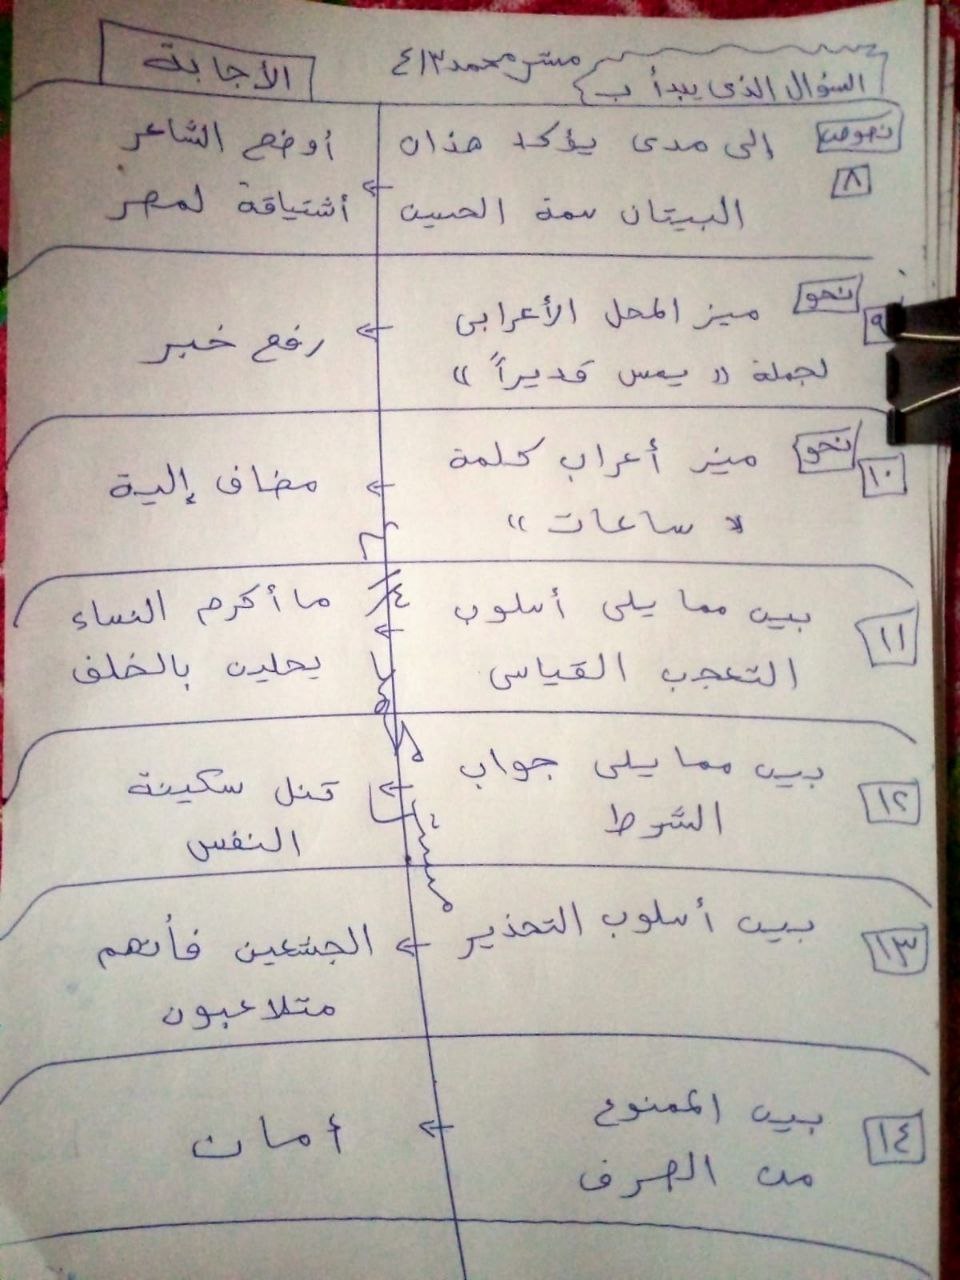 مستر محمد ٤١٣
السؤال الذى يبدأ ب
الأجابة
نصوص
٨
إلى مدى يؤكد هذان
البيتان سمة الحنين
أوضح الشاعر
أشتياقة لمصر
نحو
٩
ميز المحل الأعرابى
لجملة (( يمس قديراً ))
رفع خبر
نحو
١٠
ميز أعراب كلمة
(( ساعات ))
مضاف إلية
١١
بين مما يلى أسلوب
التعجب القياسى
ما أكرم النساء
يحلين بالخلف
١٢
بين مما يلى جواب
الشرط
تنل سكينة
النفس
١٣
بين أسلوب التحذير
الجشعين فأنهم
متلاعبون
١٤
بين الممنوع
من الصرف
أمان